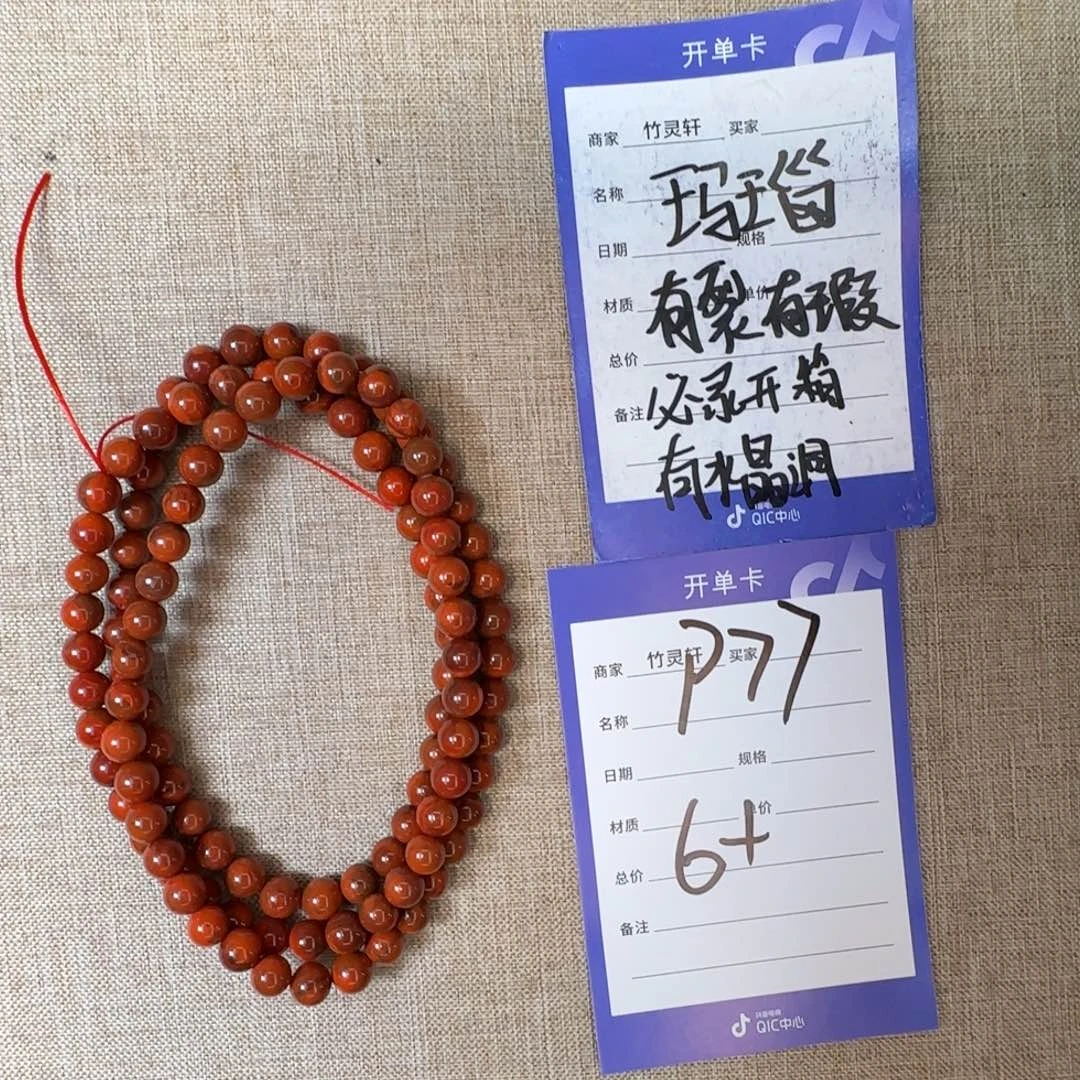 开单卡
商家 竹灵轩 买家
名称 玛瑙
日期 规格
材质 有裂有瑕 单价
总价
备注 必录开箱
有水晶洞
抖音电商
QIC中心
开单卡
商家 竹灵轩 买家
P77
名称
日期 规格
材质 单价
6+
总价
备注
抖音电商
QIC中心